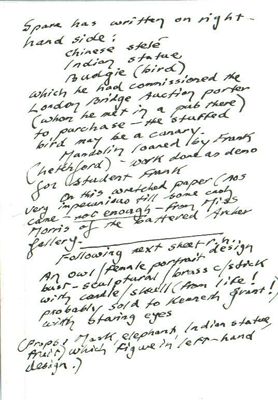 Spare has written on right-
hand side:
chinese stelé
Indian statue
Budgie (bird)
which he had commissioned the
London Bridge Auction porter
(whom he met in a pub there)
to purchase – the stuffed
bird may be a canary.
Mandolin loaned by Frank
(Letchford) – work done as demo
for student Frank
On this wretched paper (AOS
very impecunious till some cash
came – not enough – from Miss
Morris of the Battered Anker
gallery.
Following next sheet is:
An owl/female portrait design
bust – sculptural/brass c/stick
with candle/skull (from life!
probably sold to Kenneth Grant!)
with staring eyes
(Props: Mask, elephant, Indian statue,
fruit) which figure in left-hand
design.)